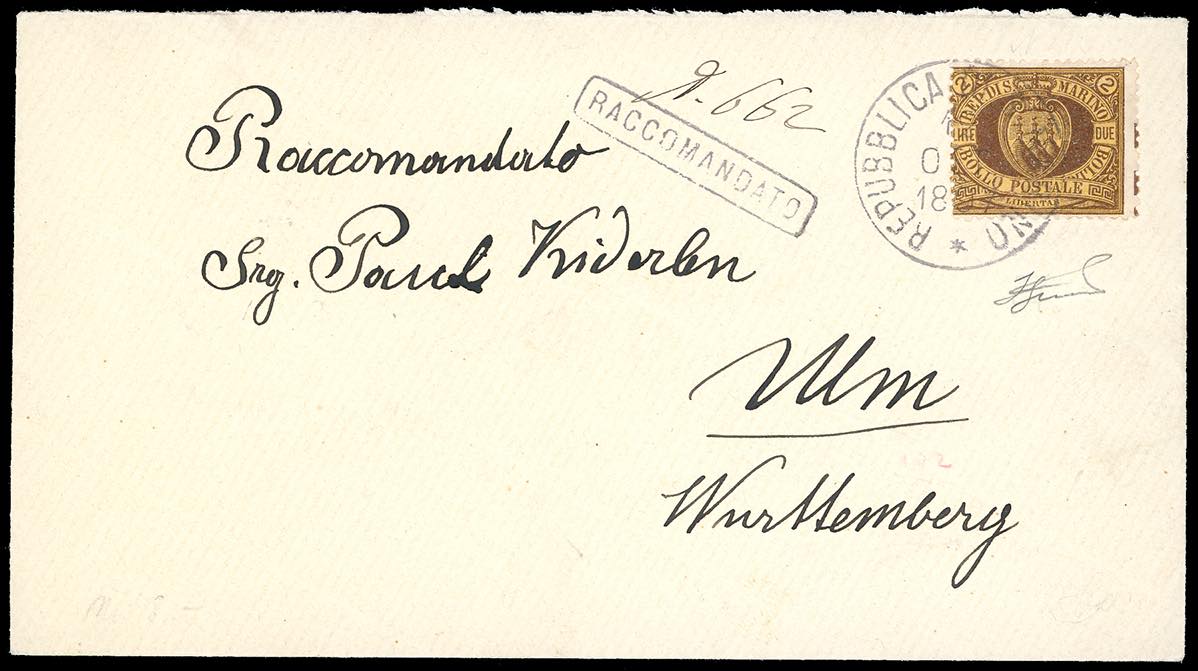 Raccomandato
N. 662
RACCOMANDATO
REPUBBLICA
18
NO
2 REP. DI S. MARINO 2
LIRE DUE
BOLLO POSTALE BOLL
LIBERTAS
Sig. Paul Kiderlen
Ulm
Württemberg